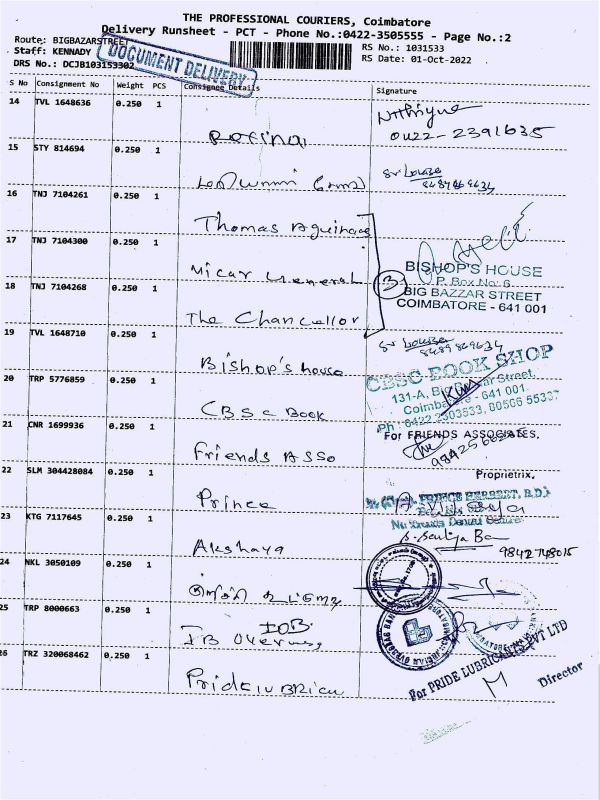 THE PROFESSIONAL COURIERS, Coimbatore
Delivery Runsheet - PCT - Phone No.:0422-3505555 - Page No.:2
Route: BIGBAZARSTREET
RS No.: 1031533
Staff: KENNADY
RS Date: 01-Oct-2022
DRS No.: DCJB103153302
DOCUMENT DELIVERY
S No Consignment No Weight PCS Consignee Details Signature
14 TVL 1648636 0.250 1
0422-2391635
15 STY 814694 0.250 1
16 TNJ 7104261 0.250 1
Thomas Aquinaas
17 TNJ 7104300 0.250 1
Vicar General
BISHOP'S HOUSE
P. Box No: 6
18 TNJ 7104268 0.250 1
3
BIG BAZZAR STREET
COIMBATORE - 641 001
The Chancellor
19 TVL 1648710 0.250 1
Bishop's house
CBSC BOOK SHOP
20 TRP 5776859 0.250 1
131-A, Big Bazaar Street,
Coimbatore - 641 001.
CBSC Book
21 CNR 1699936 0.250 1
For FRIENDS ASSOCIATES,
Friends Asso
22 SLM 304428084 0.250 1
Proprietrix,
Prince
PRINCE HERBERT, B.D.
23 KTG 7117645 0.250 1
Akshaya
9842748015
24 NKL 3050109 0.250 1
25 TRP 8000663 0.250 1
IOB
26 TRZ 320068462 0.250 1
For PRIDE LUBRICANTS PVT LTD
Director